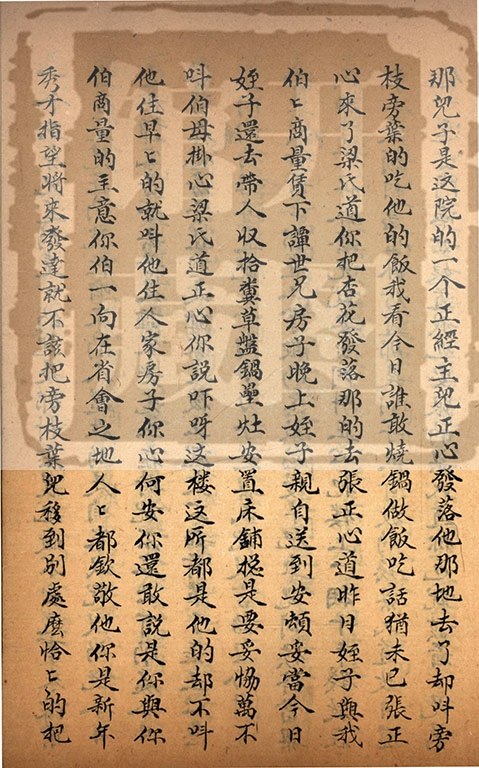 那兒子是这院的一个正經主兒正心發落他那地去了却呌旁
枝旁葉的吃他的飯我看今日誰敢燒鍋做飯吃話猶未已張正
心來了梁氏道你把杏花發落那的去張正心道昨日姪子與我
伯〻商量賃下譚世兄房子晚上姪子親自送到安頓妥當今日
姪子還去帶人収拾糞草盤鍋壘灶安置床鋪捴是要妥恊萬不
呌伯母掛心梁氏道正心你説吓呀这楼这所都是他的却不呌
他住早〻的就呌他住人家房子你心何安你還敢説是你與你
伯商量的主意你伯一向在省會之地人〻都欽敬他你是新年
秀才指望將來發達就不該把旁枝葉兒移到別處麽恰〻的把